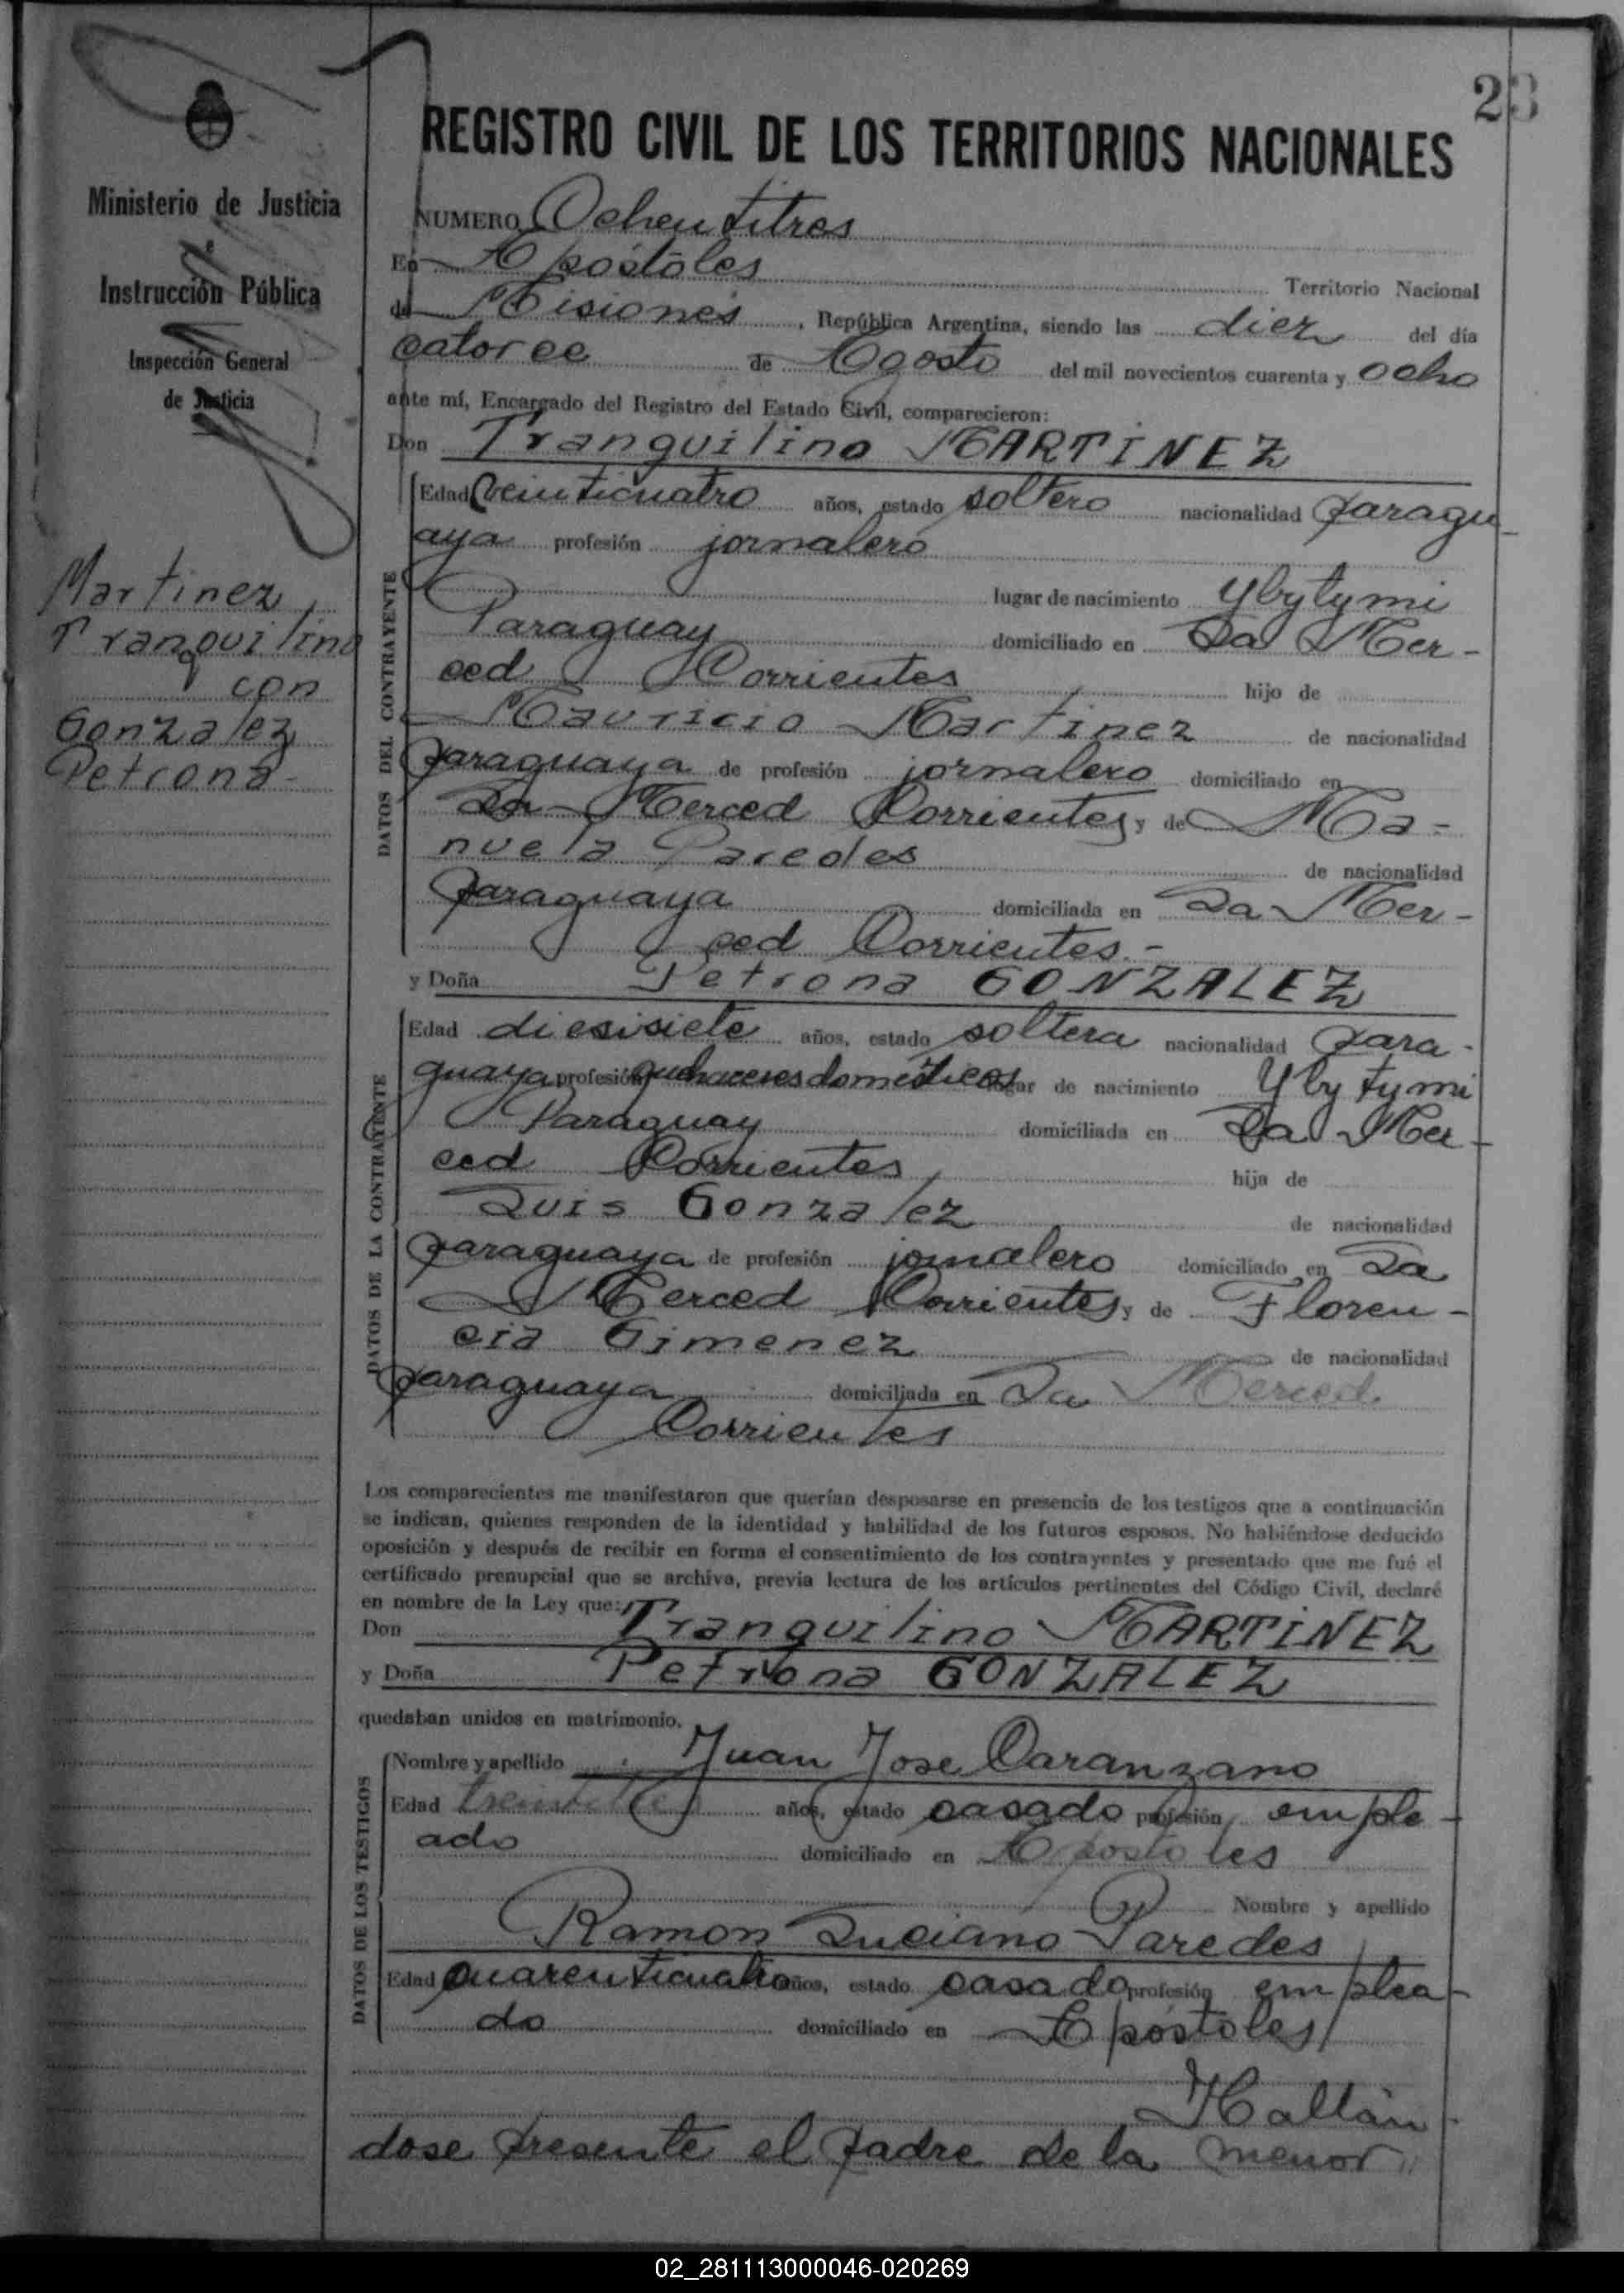 23
REGISTRO CIVIL DE LOS TERRITORIOS NACIONALES
Ministerio de Justicia
e
Instrucción Pública
Inspección General
de Justicia
Martinez
Tranquilino
con
Gonzalez
Petrona-
NUMERO Ochentitres
En Apóstoles Territorio Nacional
de Misiones, República Argentina, siendo las diez del día
catorce de Agosto del mil novecientos cuarenta y ocho
ante mí, Encargado del Registro del Estado Civil, comparecieron:
Don Tranquilino MARTINEZ
DATOS DEL CONTRAYENTE
Edad veinticuatro años, estado soltero nacionalidad paragu-
aya profesión jornalero
lugar de nacimiento Ybytymi
Paraguay domiciliado en La Mer-
ced Corrientes hijo de
Mauricio Martinez de nacionalidad
paraguaya de profesión jornalero domiciliado en
La Merced Corrientes y de Ma-
nuela Paredes de nacionalidad
paraguaya domiciliada en La Mer-
ced Corrientes.-
y Doña Petrona GONZALEZ
DATOS DE LA CONTRAYENTE
Edad diesisiete años, estado soltera nacionalidad para-
guaya profesión quehaceres domésticos lugar de nacimiento Ybytymi
Paraguay domiciliada en La Mer-
ced Corrientes hija de
Luis Gonzalez de nacionalidad
paraguaya de profesión jornalero domiciliado en La
Merced Corrientes y de Floren-
cia Gimenez de nacionalidad
paraguaya domiciliada en La Merced
Corrientes
Los comparecientes me manifestaron que querían desposarse en presencia de los testigos que a continuación
se indican, quienes responden de la identidad y habilidad de los futuros esposos. No habiéndose deducido
oposición y después de recibir en forma el consentimiento de los contrayentes y presentado que me fué el
certificado prenupcial que se archiva, previa lectura de los artículos pertinentes del Código Civil, declaré
en nombre de la Ley que:
Don Tranquilino MARTINEZ
y Doña Petrona GONZALEZ
quedaban unidos en matrimonio.
DATOS DE LOS TESTIGOS
Nombre y apellido Juan Jose Caranzano
Edad años, estado casado profesión emple-
ado domiciliado en Apostoles
Nombre y apellido
Ramon Luciano Paredes
Edad cuarenticuatro años, estado casado profesión emplea-
do domiciliado en Apóstoles
Hallán-
dose presente el padre de la menor
02_281113000046-020269